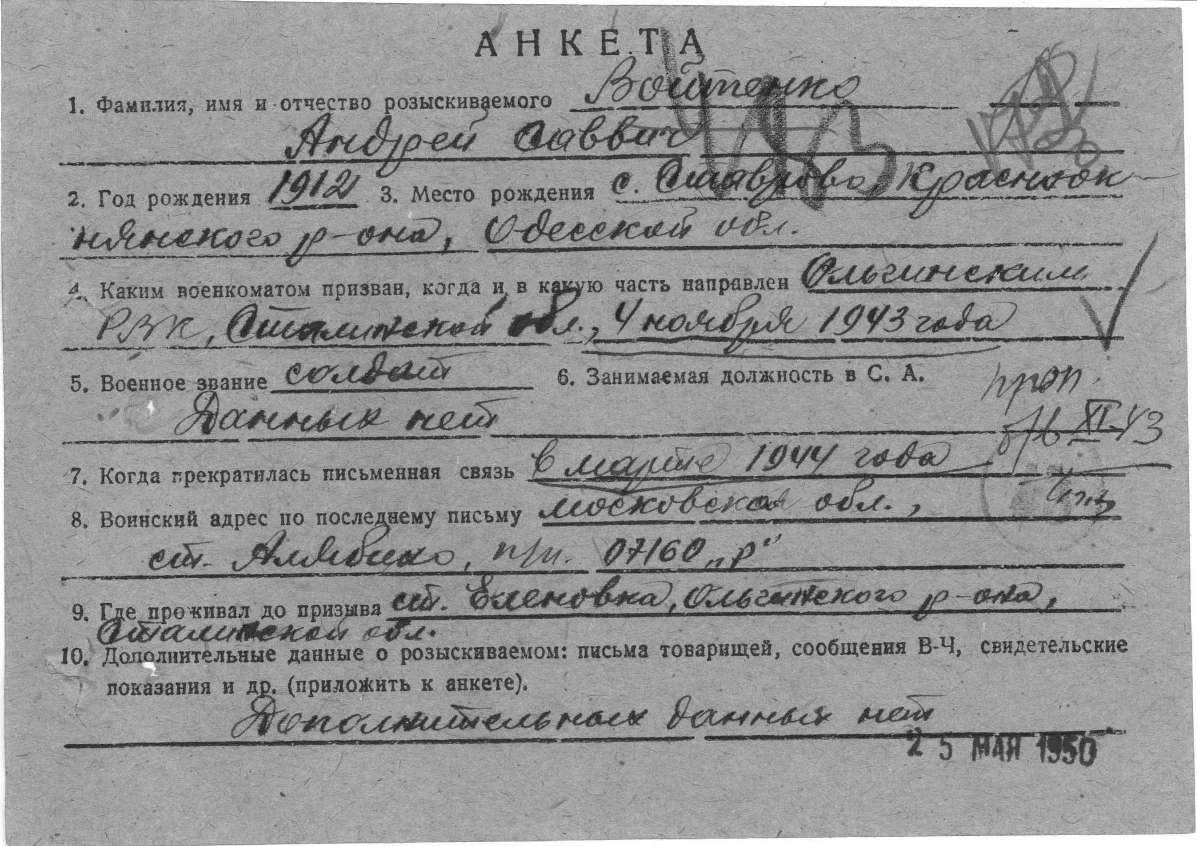 АНКЕТА
1. Фамилия, имя и отчество розыскиваемого Войтенко
Андрей Саввич
2. Год рождения 1912 3. Место рождения с. Ставрово, Красноок
нянского р-она, Одесской обл.
4. Каким военкоматом призван, когда и в какую часть направлен Ольгинским
РВК, Сталинской обл., 4 ноября 1943 года
5. Военное звание солдат 6. Занимаемая должность в С. А.
Данных нет
проп.
б/в XI.43
7. Когда прекратилась письменная связь в марте 1944 года
8. Воинский адрес по последнему письму московская обл.,
ст. Алябино, п/п. 07160 „р"
9. Где проживал до призыва ст. Еленовка, Ольгинского р-она,
Сталинской обл.
10. Дополнительные данные о розыскиваемом: письма товарищей, сообщения В-Ч, свидетельские
показания и др. (приложить к анкете).
Дополнительных данных нет
25 МАЯ 1950